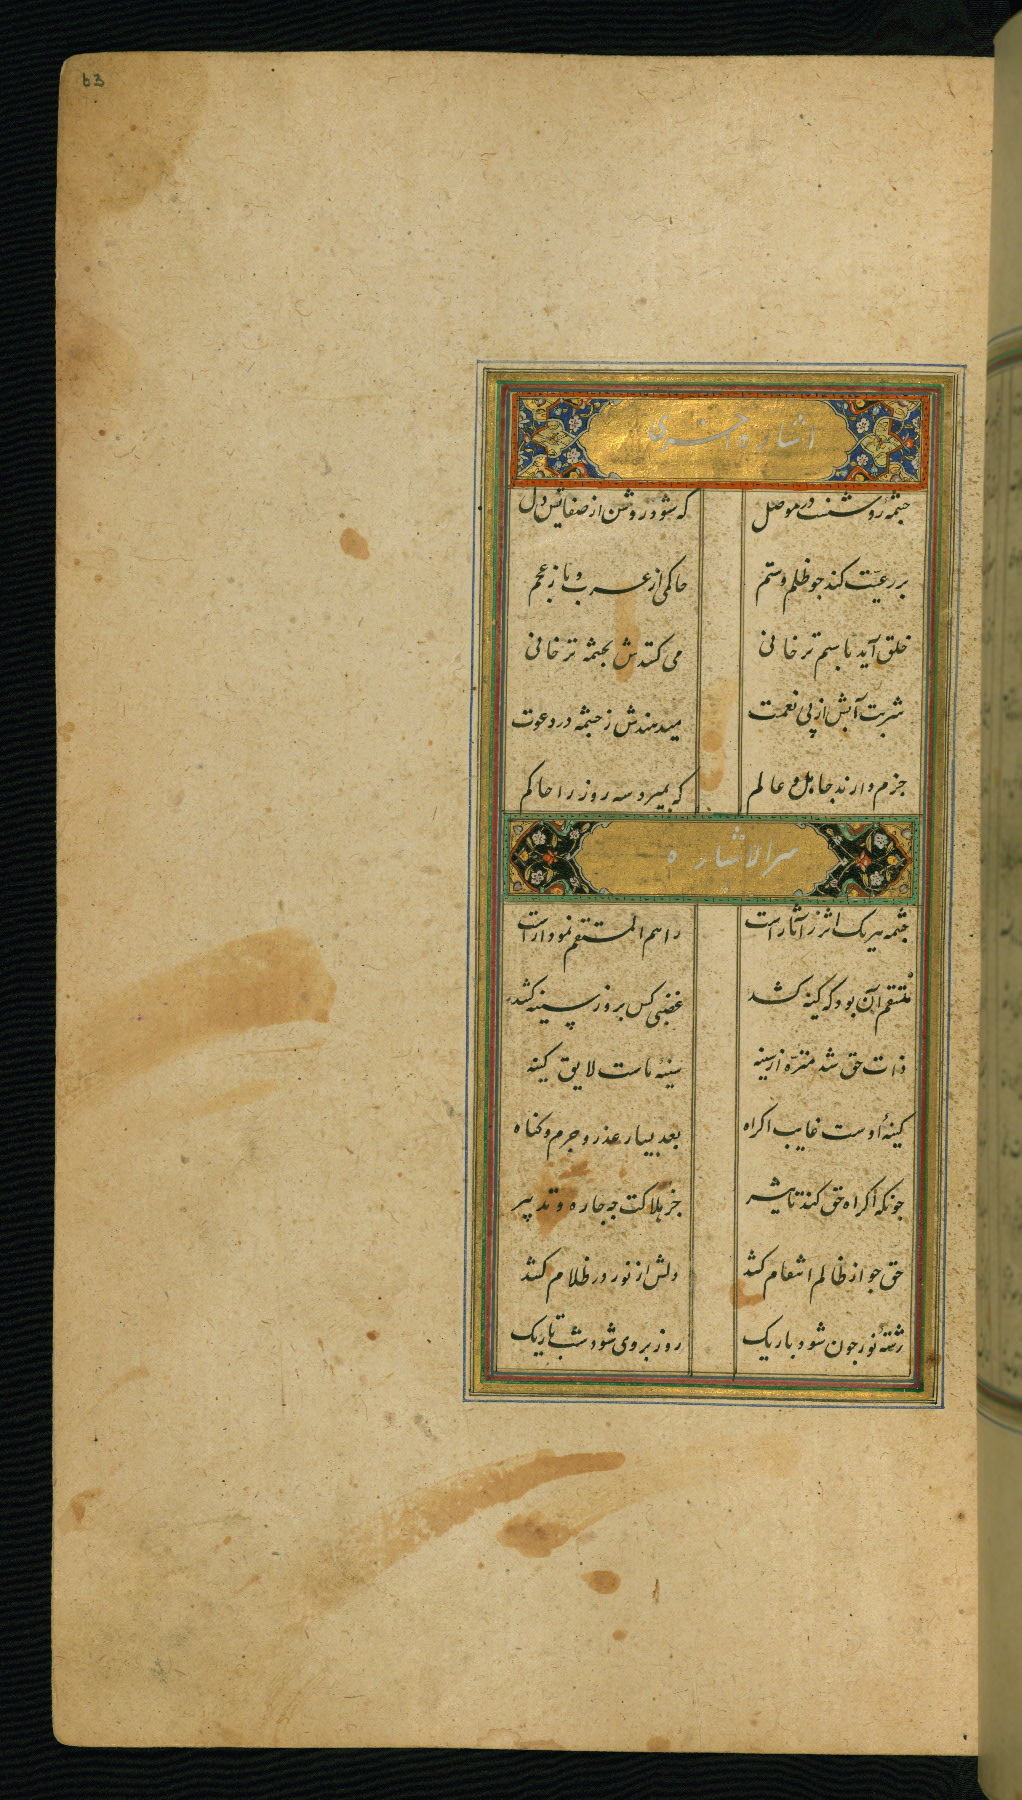 63
اشاره خبری
چشمهٔ روشنست در موصل که شود روشن از صفایش دل
بر رعیّت کند جو ظلم و ستم حاکمی از عرب و یا ز عجم
خلق آید باسم ترخانی می کشندش بجشمه ترخانی
شربت آبش از پی نعمت میدهندش ز جشمه در دعوت
جزم دارند جاهل و عالم که بمیرد سه روز را حاکم
سر الاشاره
جشمه هر یک اثر ز آثار است راسم المنتقم نمودار است
منتقم آن بود که کینه کشد غضبی کس بروز سینه کشد
ذات حق شد منزّه از سینه سینهٔ ماست لایق کینه
کینهٔ اوست غایب اکراه بعد بسیار عذر و جرم و کناه
جونکه اکراه حق کند تاثیر جز هلاکت جه جاره و تدبیر
حق جو از ظالم انتقام کشد دلش از نور در ظلام کشد
رشتهٔ نور جون شود باریک روز بر وی شود شب تاریک